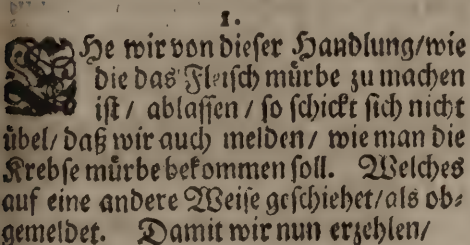 1.
EHe wir von dieser Handlung/wie
die das Fleisch mürbe zu machen
ist / ablassen / so schickt sich nicht
übel/ daß wir auch melden / wie man die
Krebse mürbe bekommen soll. Welches
auf eine andere Weise geschiehet/als ob⸗
gemeldet. Damit wir nun erzehlen/